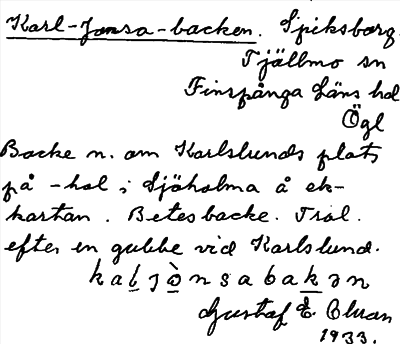 Karl-Jonsa-backen. Spiksborg
Tjällmo sn
Finspånga Läns hd
Ögl
Backe n. om Karlslunds plats
på -hol i Sjöholma å ek-
kartan. Betesbacke. Trol.
efter en gubbe vid Karlslund.
kaḷjò̱nsabaḵən
Gustaf E.
1933.